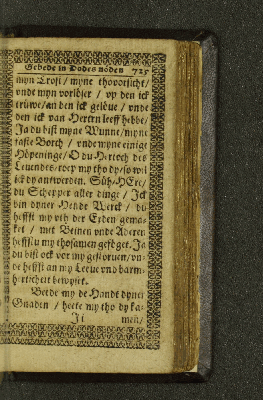 Gebede in Dodes nöden 725
myn Trost / myne thovorsicht /
unde myn vorlöser / vp den ick
trüwe / an den ick gelöue / unde
den ick van Herten leeff hebbe /
Ja du bist myne Wunne / myne
faste Borch / unde myne einige
Höpeninge / O du Hertoch des
Leuendes / roep my tho dy / so wil
ick dy antwerden. Süh / HEre /
du Schepper aller dinge / Ick
bin dyner Hende Werck / du
heffst my vth der Erden gema-
ket / mit Beinen unde Aderen
heffstu my thosamen geföget. Ja
du bist ock vor my gestoruen / un-
de heffst an my Leeue und barm-
herticheit bewyset.
Bede my de Handt dyner
Gnaden / heete my tho dy ka-
Ji men /